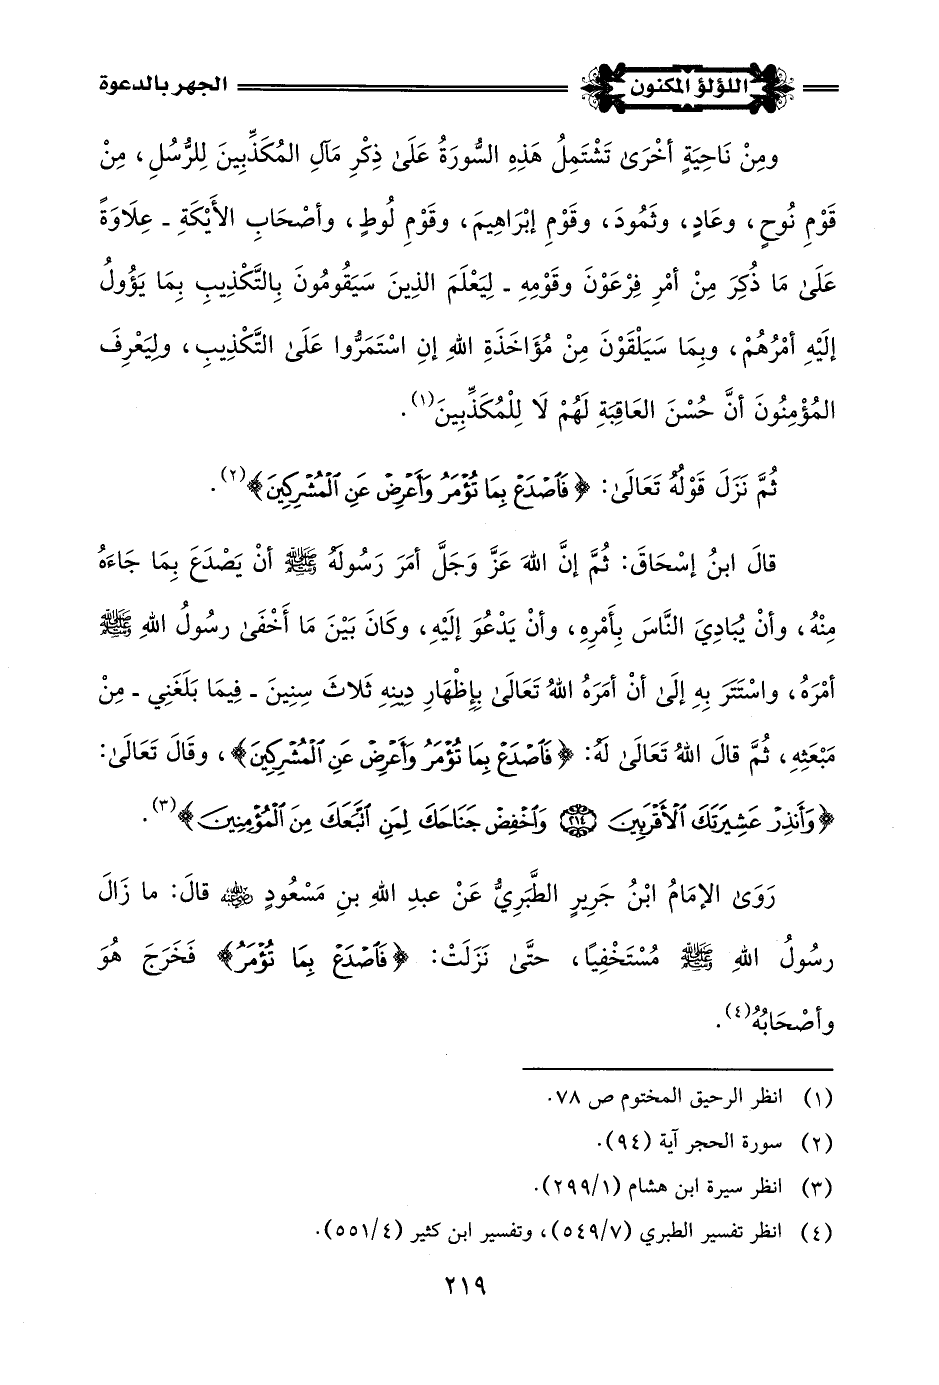 اللؤلؤ المكنون الجهر بالدعوة
ومِنْ نَاحِيَةٍ أخْرَىٰ تَشْتَمِلُ هَذِهِ السُّورَةُ عَلَىٰ ذِكْرِ مَآلِ المُكَذِّبِينَ لِلرُّسُلِ، مِنْ
قَوْمِ نُوحٍ، وعَادٍ، وثَمُودَ، وقَوْمِ إبْرَاهِيمَ، وقَوْمِ لُوطٍ، وأصْحَابِ الأَيْكَةِ - عِلَاوَةً
عَلَىٰ مَا ذُكِرَ مِنْ أمْرِ فِرْعَوْنَ وقَوْمِهِ - لِيَعْلَمَ الذِينَ سَيَقُومُونَ بِالتَّكْذِيبِ بِمَا يَؤُولُ
إلَيْهِ أمْرُهُمْ، وبِمَا سَيَلْقَوْنَ مِنْ مُؤَاخَذَةِ اللهِ إنِ اسْتَمَرُّوا عَلَىٰ التَّكْذِيبِ، ولِيَعْرِفَ
المُؤْمِنُونَ أنَّ حُسْنَ العَاقِبَةِ لَهُمْ لَا لِلْمُكَذِّبِينَ(١).
ثُمَّ نَزَلَ قَوْلُهُ تَعَالَىٰ: ﴿فَٱصْدَعْ بِمَا تُؤْمَرُ وَأَعْرِضْ عَنِ ٱلْمُشْرِكِينَ﴾(٢).
قالَ ابنُ إسْحَاقَ: ثُمَّ إنَّ اللهَ عَزَّ وَجَلَّ أمَرَ رَسُولَهُ ﷺ أنْ يَصْدَعَ بِمَا جَاءَهُ
مِنْهُ، وأنْ يُبَادِيَ النَّاسَ بِأَمْرِهِ، وأنْ يَدْعُوَ إلَيْهِ، وكَانَ بَيْنَ مَا أَخْفَىٰ رسُولُ اللهِ ﷺ
أمْرَهُ، واسْتَتَرَ بِهِ إلَىٰ أنْ أمَرَهُ اللهُ تَعَالَىٰ بِإِظْهَارِ دِينِهِ ثَلاثَ سِنِينَ - فِيمَا بَلَغَنِي - مِنْ
مَبْعَثِهِ، ثُمَّ قالَ اللهُ تَعَالَىٰ لَهُ: ﴿فَٱصْدَعْ بِمَا تُؤْمَرُ وَأَعْرِضْ عَنِ ٱلْمُشْرِكِينَ﴾، وقَالَ تَعَالَىٰ:
﴿وَأَنذِرْ عَشِيرَتَكَ ٱلْأَقْرَبِينَ ٢١٤ وَٱخْفِضْ جَنَاحَكَ لِمَنِ ٱتَّبَعَكَ مِنَ ٱلْمُؤْمِنِينَ﴾(٣).
رَوَىٰ الإمَامُ ابْنُ جَرِيرٍ الطَّبَرِيُّ عَنْ عبدِ اللهِ بنِ مَسْعُودٍ رضي الله عنه قالَ: ما زَالَ
رسُولُ اللهِ ﷺ مُسْتَخْفِيًا، حتَّىٰ نَزَلَتْ: ﴿فَٱصْدَعْ بِمَا تُؤْمَرُ﴾ فَخَرَجَ هُوَ
وأصْحَابُهُ(٤).
(١) انظر الرحيق المختوم ص ٧٨.
(٢) سورة الحجر آية (٩٤).
(٣) انظر سيرة ابن هشام (٢٩٩/١).
(٤) انظر تفسير الطبري (٥٤٩/٧)، وتفسير ابن كثير (٥٥١/٤).
٢١٩